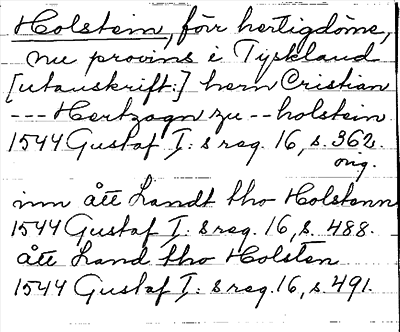 Holstein, förr hertigdöme,
nu provins i Tyskland
[utanskrift:] hern Cristian
--- Hertzogn zu -- holstein
1544 Gustaf I: s reg. 16, s. 362.
orig.
inn ått Landt tho Holstenn
1544 Gustaf I: s reg. 16, s. 488.
ått Land tho Holsten
1544 Gustaf I: s reg. 16, s. 491.